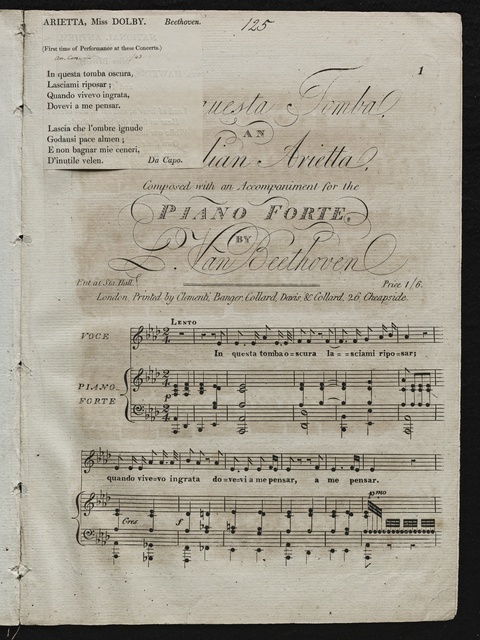 ARIETTA, Miss DOLBY. Beethoven.
125
(First time of Performance at these Concerts.)
1
In questa tomba oscura,
Lasciami riposar;
Quando vivevo ingrata,
Dovevi a me pensar.
Lascia che l'ombre ignude
Godansi pace almen;
E non bagnar mie ceneri,
D'inutile velen. Da Capo.
uesta Tomba.
AN
lian Arietta,
Composed with an Accompaniment for the
PIANO FORTE,
BY
L. Van Beethoven
Ent. at Sta. Hall. Price 1/6.
London, Printed by Clementi, Banger, Collard, Davis, & Collard, 26 Cheapside.
LENTO
VOCE
In questa tomba o=scura la==sciami ripo=sar;
PIANO-
FORTE
p
quando vive=vo ingrata do=ve=vi a me pensar, a me pensar.
Cres. f pmo